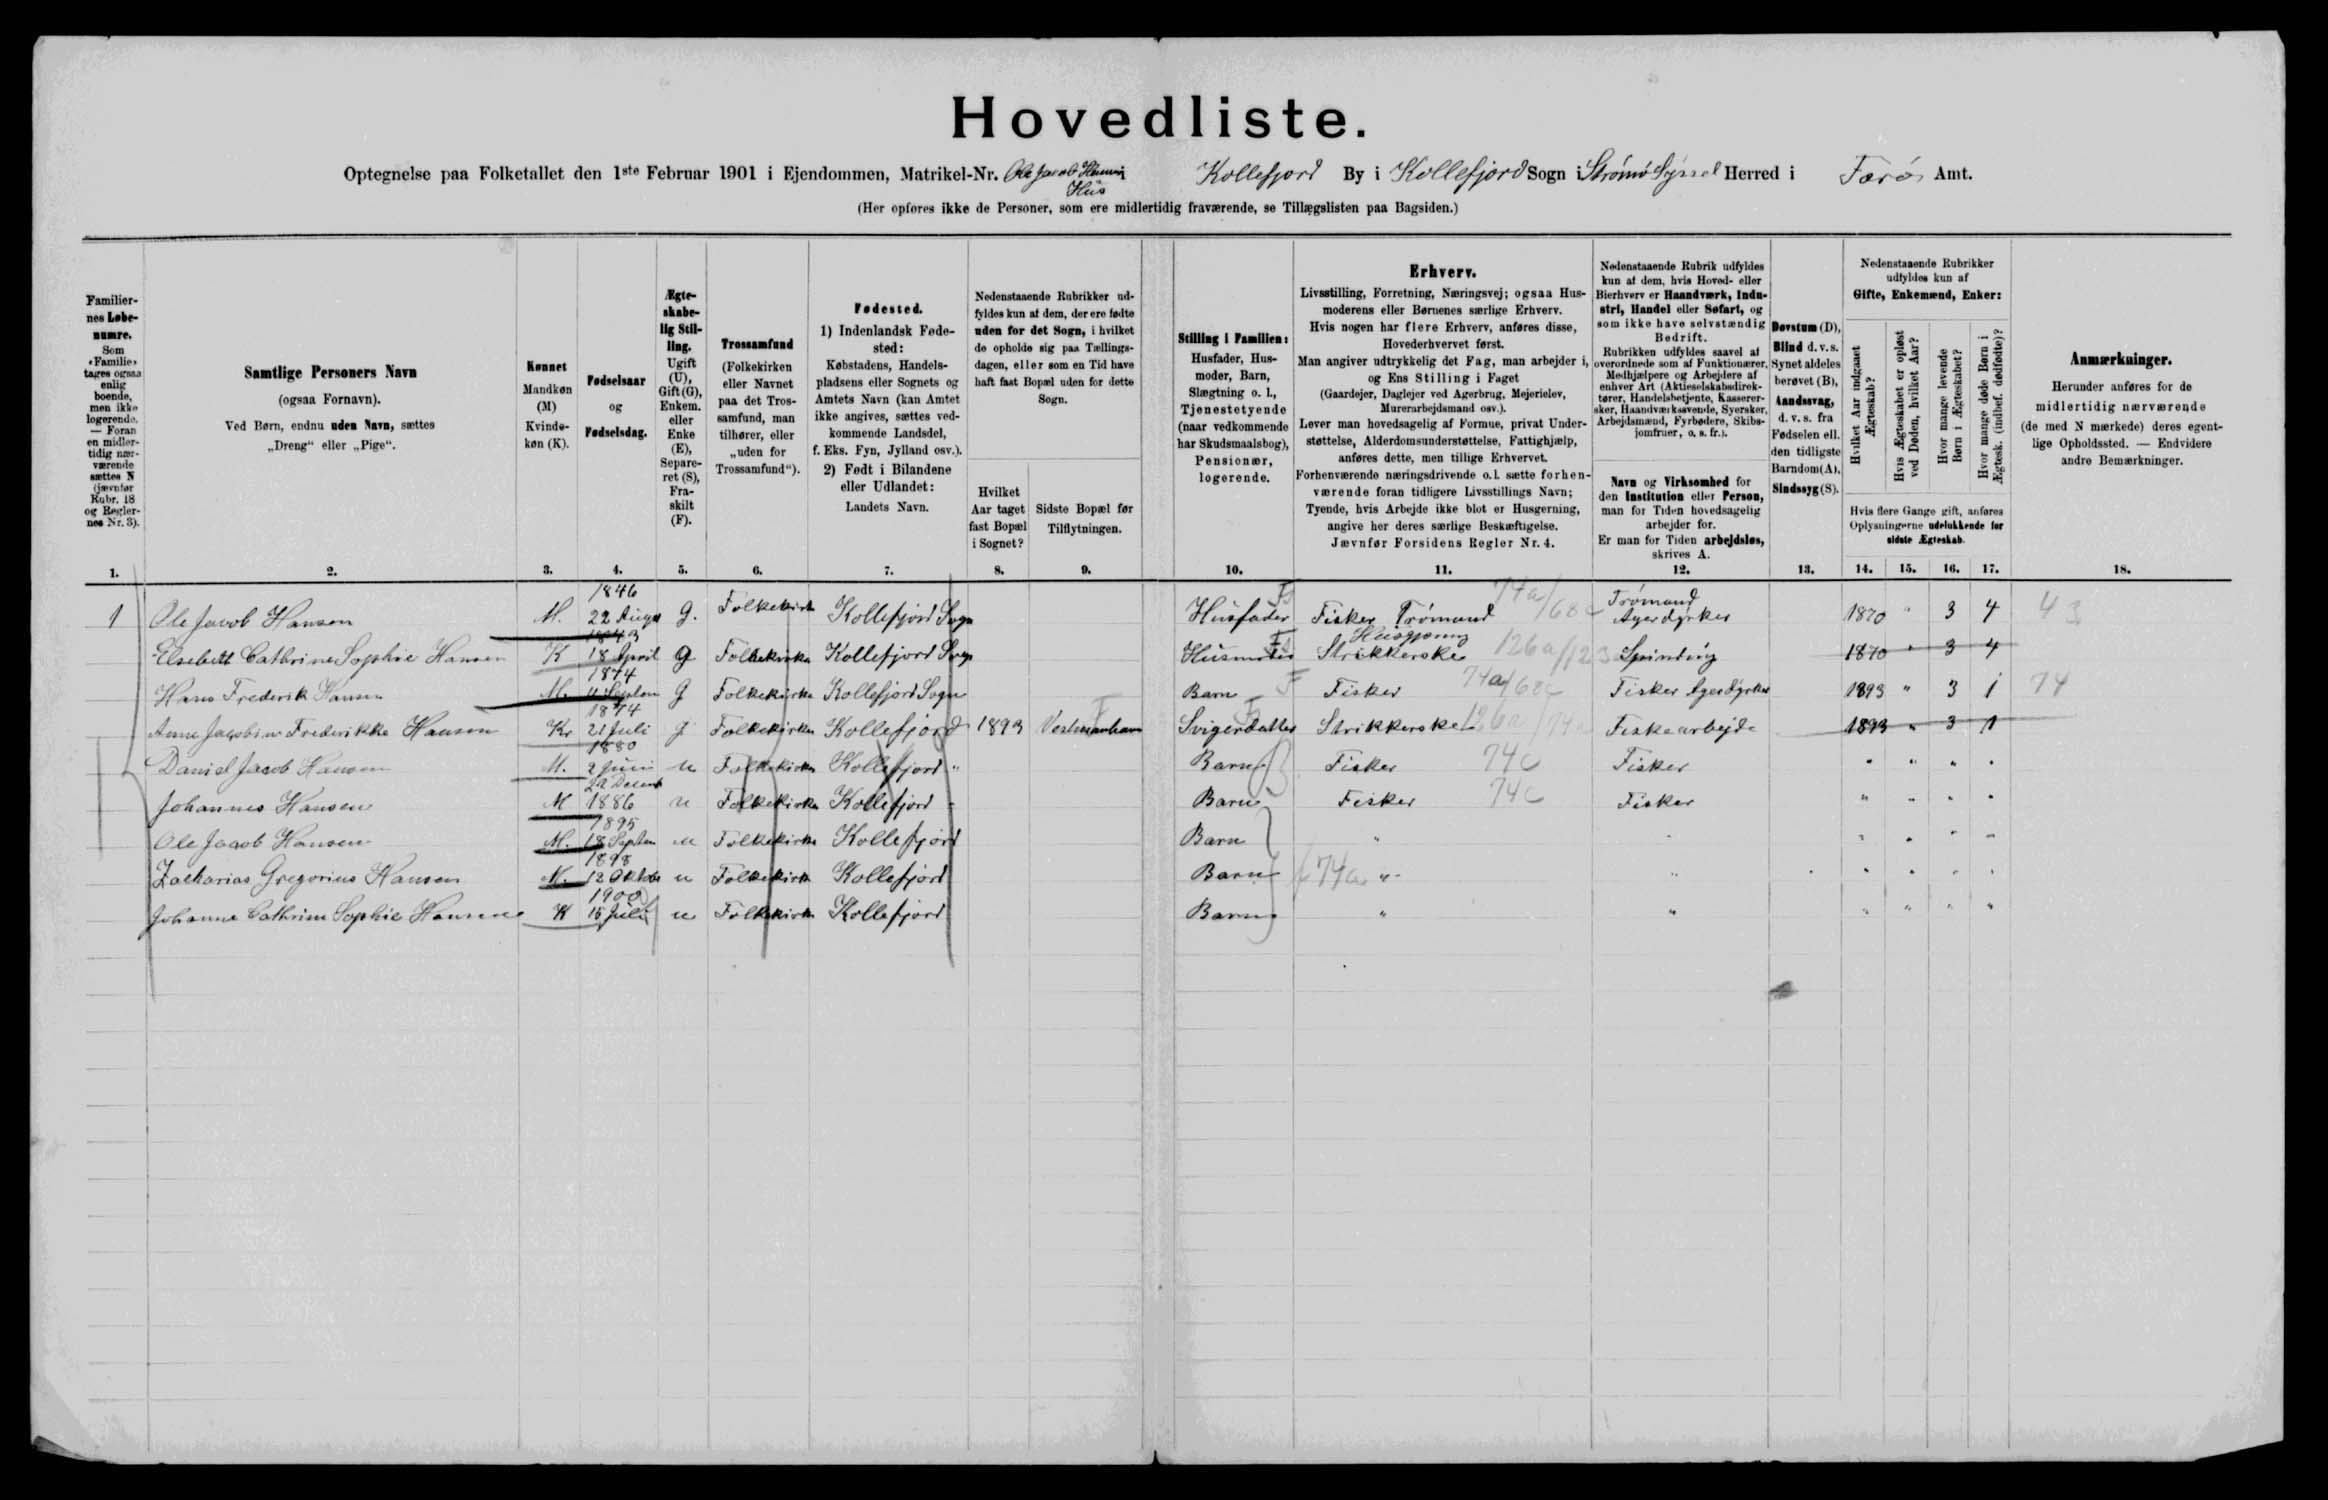 Hovedliste.
Optegnelse paa Folketallet den 1ste Februar 1901 i Ejendommen, Matrikel-Nr. Ole Jacob Hansens Hus i Kollefjord By i Kollefjord Sogn i Strömö Syssel Herred i Færö Amt.
(Her opføres ikke de Personer, som ere midlertidig fraværende, se Tillægslisten paa Bagsiden.)
Familier-
nes Løbe-
numre.
Som
«Familie»
tages ogsaa
enlig
boende,
men ikke
logerende.
— Foran
en midler-
tidig nær-
værende
sættes N
(jævnfør
Rubr. 18
og Regler-
nes Nr. 3).
1.
Samtlige Personers Navn
(ogsaa Fornavn).
Ved Børn, endnu uden Navn, sættes
„Dreng“ eller „Pige“.
2.
Kønnet
Mandkøn
(M)
Kvinde-
køn (K).
3.
Fødselsaar
og
Fødselsdag.
4.
Ægte-
skabe-
lig Stil-
ling.
Ugift
(U),
Gift (G),
Enkem.
eller
Enke
(E),
Separe-
ret (S),
Fra-
skilt
(F).
5.
Trossamfund
(Folkekirken
eller Navnet
paa det Tros-
samfund, man
tilhører, eller
„uden for
Trossamfund“).
6.
Fødested.
1) Indenlandsk Føde-
sted:
Købstadens, Handels-
pladsens eller Sognets og
Amtets Navn (kan Amtet
ikke angives, sættes ved-
kommende Landsdel,
f. Eks. Fyn, Jylland osv.).
2) Født i Bilandene
eller Udlandet:
Landets Navn.
7.
Nedenstaaende Rubrikker ud-
fyldes kun af dem, der ere fødte
uden for det Sogn, i hvilket
de opholde sig paa Tællings-
dagen, eller som en Tid have
haft fast Bopæl uden for dette
Sogn.
Hvilket
Aar taget
fast Bopæl
i Sognet?
8.
Sidste Bopæl før
Tilflytningen.
9.
Stilling i Familien:
Husfader, Hus-
moder, Barn,
Slægtning o. l.,
Tjenestetyende
(naar vedkommende
har Skudsmaalsbog),
Pensionær,
logerende.
10.
Erhverv.
Livsstilling, Forretning, Næringsvej; ogsaa Hus-
moderens eller Børnenes særlige Erhverv.
Hvis nogen har flere Erhverv, anføres disse,
Hovederhvervet først.
Man angiver udtrykkelig det Fag, man arbejder i,
og Ens Stilling i Faget
(Gaardejer, Daglejer ved Agerbrug, Mejerielev,
Murerarbejdsmand osv.).
Lever man hovedsagelig af Formue, privat Under-
støttelse, Alderdomsunderstøttelse, Fattighjælp,
anføres dette, men tillige Erhvervet.
Forhenværende næringsdrivende o. l. sætte forhen-
værende foran tidligere Livsstillings Navn;
Tyende, hvis Arbejde ikke blot er Husgerning,
angive her deres særlige Beskæftigelse.
Jævnfør Forsidens Regler Nr. 4.
11.
Nedenstaaende Rubrik udfyldes
kun af dem, hvis Hoved- eller
Bierhverv er Haandværk, Indu-
stri, Handel eller Søfart, og
som ikke have selvstændig
Bedrift.
Rubrikken udfyldes saavel af
overordnede som af Funktionærer,
Medhjælpere og Arbejdere af
enhver Art (Aktieselskabsdirek-
tører, Handelsbetjente, Kasserer-
sker, Haandværkssvende, Syersker,
Arbejdsmænd, Fyrbødere, Skibs-
jomfruer, o. s. fr.).
Navn og Virksomhed for
den Institution eller Person,
man for Tiden hovedsagelig
arbejder for.
Er man for Tiden arbejdsløs,
skrives A.
12.
Døvstum (D),
Blind d. v. s.
Synet aldeles
berøvet (B),
Aandssvag,
d. v. s. fra
Fødselen ell.
den tidligste
Barndom (A),
Sindssyg (S).
13.
Nedenstaaende Rubrikker
udfyldes kun af
Gifte, Enkemænd, Enker:
Hvilket Aar indgaaet
Ægteskab?
Hvis Ægteskabet er opløst
ved Døden, hvilket Aar?
Hvor mange levende
Børn i Ægteskabet?
Hvor mange døde Børn i
Ægtesk. (indbef. dødfødte)?
Hvis flere Gange gift, anføres
Oplysningerne udelukkende for
sidste Ægteskab.
14. 15. 16. 17.
Anmærkninger.
Herunder anføres for de
midlertidig nærværende
(de med N mærkede) deres egent-
lige Opholdssted. — Endvidere
andre Bemærkninger.
18.
1 Ole Jacob Hansen M. 1846 22 August G. Folkekirk Kollefjord Sogn Husfader Fisker Trömand 74a/68c Trömand Agerdyrker 1870 " 3 4 43
Elsebett Cathrine Sophie Hansen K 1843 18 April G Folkekirke Kollefjord Sogn Husmoder Husgjerning Strikkerske 126a/123 Spinding 1870 " 3 4
Hans Frederik Hansen M. 1874 Septem G Folkekirke Kollefjord Sogn Barn F Fisker 74a/68c Fisker Agerdyrker 1893 " 3 1 74
Anne Jacobine Frederikke Hansen Kv 1874 21 Juli g Folkekirke Kollefjord 1893 Vestmanhavn Svigerdatter Strikkerske Fiskearbejde 1893 " 3 1
Daniel Jacob Hansen M. 1880 2 Juni u Folkekirke Kollefjord " Barn Fisker 74c Fisker " " " "
Johannes Hansen M 22 Decemb 1886 u Folkekirke Kollefjord Barn Fisker 74c Fisker " " " "
Ole Jacob Hansen M. 1895 18 Septem u Folkekirke Kollefjord Barn " " " " " "
Zacharias Gregorius Hansen M. 1898 12 Oktober u Folkekirk Kollefjord Barn 74a " " " " " "
Johanne Cathrine Sophie Hansen K 1900 15 Juli u Folkekirk Kollefjord Barn " " " " " "